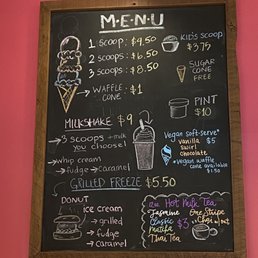 M·E·N·U
1 SCOOP: $4.50
2 SCOOPS: $6.50
3 SCOOPS: $8.50
→ WAFFLE CONE : $1
KID'S SCOOP
$3.75
SUGAR
CONE
FREE
PINT
$10
MILKSHAKE $9
→3 SCOOPS +milk
you choose!
→whip cream
→fudge →caramel
Vegan soft-serve*
vanilla $5
swirl
chocolate
*vegan waffle
cone available
$1.50
GRILLED FREEZE $5.50
DONUT
ice cream
→grilled
→fudge
→caramel
Hot Milk Tea
Jasmine
Classic
Matcha
Thai Tea
$5